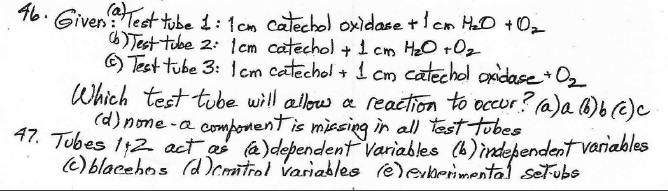 46. Given: (a) Test tube 1: 1cm catechol oxidase + 1cm H2O + O2
(b) Test tube 2: 1cm catechol + 1 cm H2O + O2
(c) Test tube 3: 1cm catechol + 1 cm catechol oxidase + O2
Which test tube will allow a reaction to occur? (a) a (b) b (c) c
(d) none - a component is missing in all test tubes
47. Tubes 1+2 act as (a) dependent variables (b) independent variables
(c) placebos (d) control variables (e) experimental setups